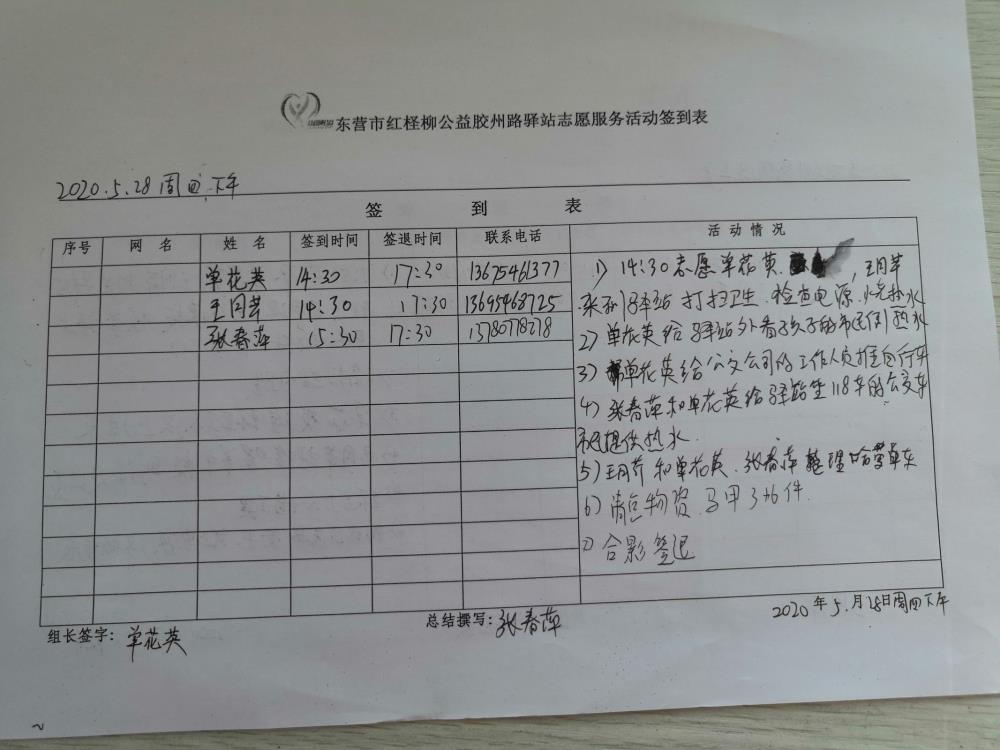 东营市红柽柳公益胶州路驿站志愿服务活动签到表
2020.5.28周四下午
签 到 表
序号 网 名 姓 名 签到时间 签退时间 联系电话 活 动 情 况
单花英 14:30 17:30 13675461377
王同芹 14:30 17:30 13695468725
张春萍 15:30 17:30 13780778278
1) 14:30志愿单花英、 ,王同芹
来到驿站 打扫卫生.检查电源.烧热水
2) 单花英给驿站外看孩子的市民倒热水
3) 单花英给公交公司的工作人员推自行车
4) 张春萍和单花英给驿站坐118车的公交车
市民提供热水.
5) 王同芹和单花英.张春萍整理
6) 清点物资.马甲376件.
7) 合影签退
2020年5.月28日周四下午
组长签字: 单花英
总结撰写: 张春萍